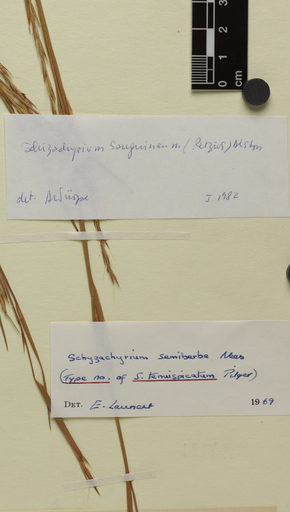 0 1 2 3
cm
Schizachyrium sanguineum (Retzius) Alston
det. I. 1982
Schyzachyrium semiberbe Nees
(Type no. of S. tenuispicatum Pilger)
DET. E. Launert 1969